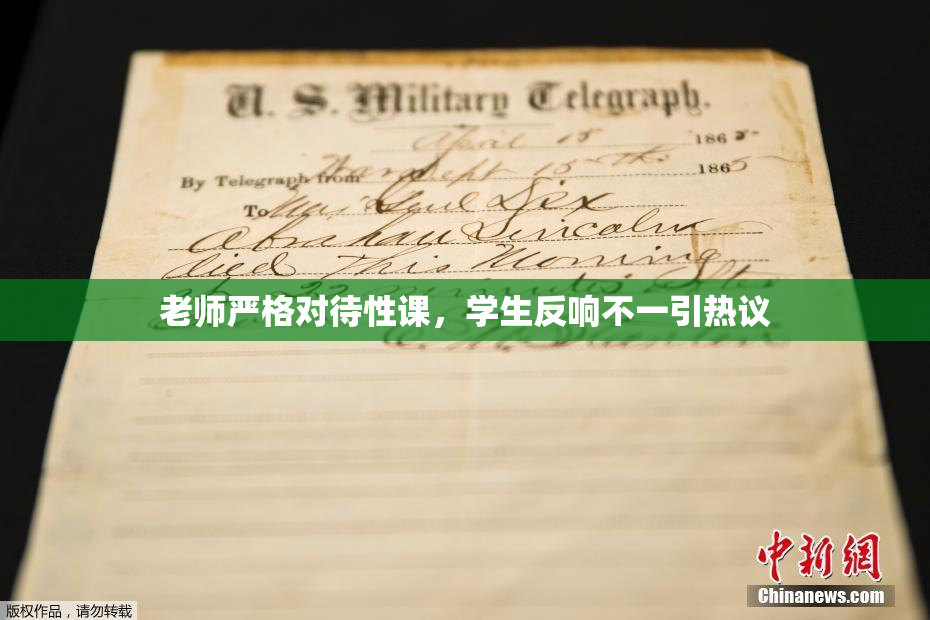 U. S. Military Telegraph.
April 15 1865
By Telegraph from War Dept 15th 1865
To Maj Genl Dix
Abraham Lincoln
died This Morning
at 22 minutes after
老师严格对待性课，学生反响不一引热议
E. M. Stanton
中新網
Chinanews.com
版权作品，请勿转载